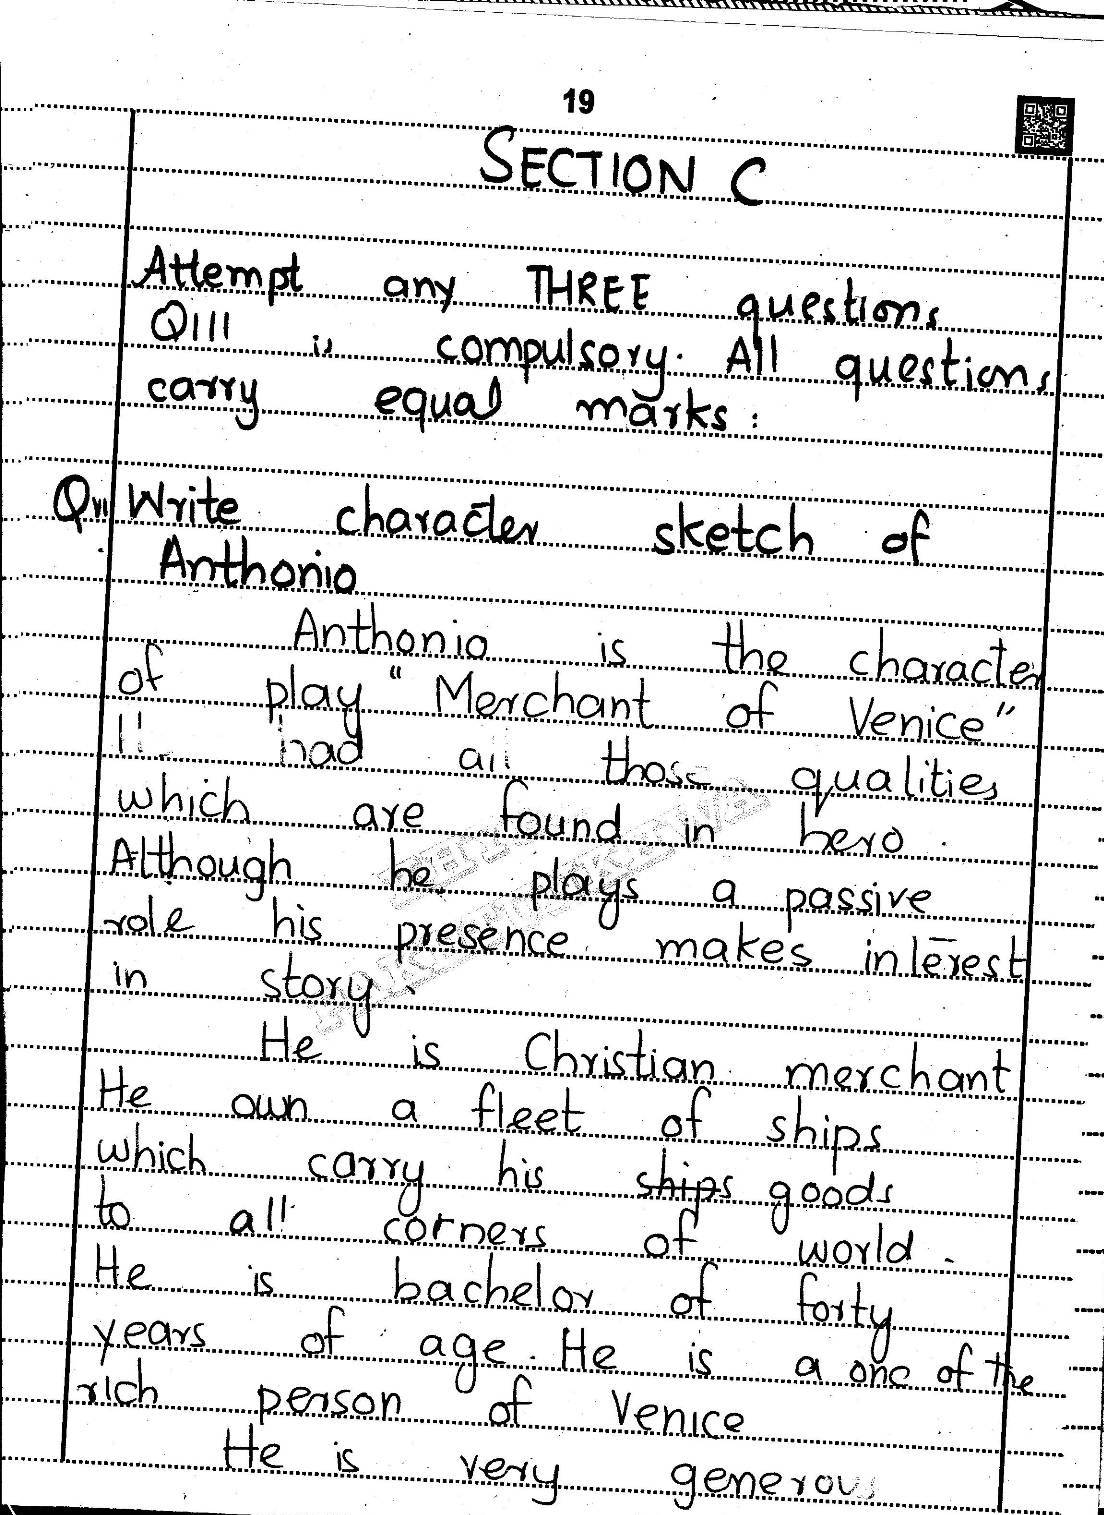 19
SECTION C
Attempt any THREE questions
QIII is compulsory. All questions
carry equal marks:
Qvii Write character sketch of
Anthonio
Anthonio is the character
of play "Merchant of Venice"
had all those qualities
which are found in hero.
Although he plays a passive
role his presence makes interest
in story.
He is Christian merchant
He own a fleet of ships
which carry his ships goods
to all corners of world.
He is bachelor of forty
years of age. He is a one of the
rich person of Venice
He is very generous